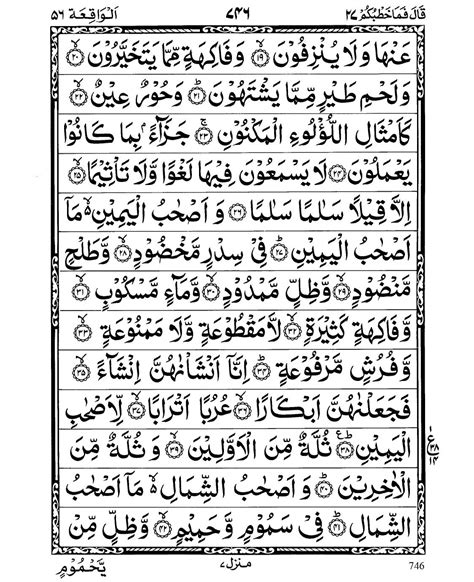 قَالَ فَمَا خَطْبُكُمْ ٢٧ ٧٤٦ اَلْوَاقِعَة ٥٦
عَنْهَا وَلَا يُنْزِفُوْنَ ۙ﴿۱۹﴾ وَفَاكِهَةٍ مِّمَّا يَتَخَيَّرُوْنَ ۙ﴿۲۰﴾
وَلَحْمِ طَيْرٍ مِّمَّا يَشْتَهُوْنَ ؕ﴿۲۱﴾ وَحُوْرٌ عِيْنٌ ۙ﴿۲۲﴾
كَاَمْثَالِ اللُّؤْلُوءِ الْمَكْنُوْنِ ۚ﴿۲۳﴾ جَزَآءًۢ بِمَا كَانُوْا
يَعْمَلُوْنَ ﴿۲۴﴾ لَا يَسْمَعُوْنَ فِيْهَا لَغْوًا وَّلَا تَاْثِيْمًا ۙ﴿۲۵﴾
اِلَّا قِيْلًا سَلٰمًا سَلٰمًا ﴿۲۶﴾ وَ اَصْحٰبُ الْيَمِيْنِ ۙ مَاۤ
اَصْحٰبُ الْيَمِيْنِ ؕ﴿۲۷﴾ فِىْ سِدْرٍ مَّخْضُوْدٍ ۙ﴿۲۸﴾ وَّطَلْحٍ
مَّنْضُوْدٍ ۙ﴿۲۹﴾ وَّظِلٍّ مَّمْدُوْدٍ ۙ﴿۳۰﴾ وَّمَآءٍ مَّسْكُوْبٍ ۙ﴿۳۱﴾
وَّفَاكِهَةٍ كَثِيْرَةٍ ۙ﴿۳۲﴾ لَّا مَقْطُوْعَةٍ وَّلَا مَمْنُوْعَةٍ ۙ﴿۳۳﴾
وَّ فُرُشٍ مَّرْفُوْعَةٍ ؕ﴿۳۴﴾ اِنَّاۤ اَنْشَاْنٰهُنَّ اِنْشَآءً ۙ﴿۳۵﴾
فَجَعَلْنٰهُنَّ اَبْكَارًا ۙ﴿۳۶﴾ عُرُبًا اَتْرَابًا ۙ﴿۳۷﴾ لِّاَصْحٰبِ
الْيَمِيْنِ ؕ﴿۳۸﴾ ثُلَّةٌ مِّنَ الْاَوَّلِيْنَ ۙ﴿۳۹﴾ وَ ثُلَّةٌ مِّنَ
الْاٰخِرِيْنَ ؕ﴿۴۰﴾ وَ اَصْحٰبُ الشِّمَالِ ۙ مَاۤ اَصْحٰبُ
الشِّمَالِ ؕ﴿۴۱﴾ فِىْ سَمُوْمٍ وَّ حَمِيْمٍ ۙ﴿۴۲﴾ وَّظِلٍّ مِّنْ
يَّحْمُوْمٍ منزل ٧ 746